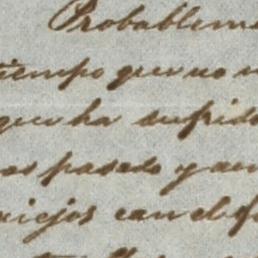 Probableme
tiempo que no
que ha sufrido
pasado y aun
viejos con el